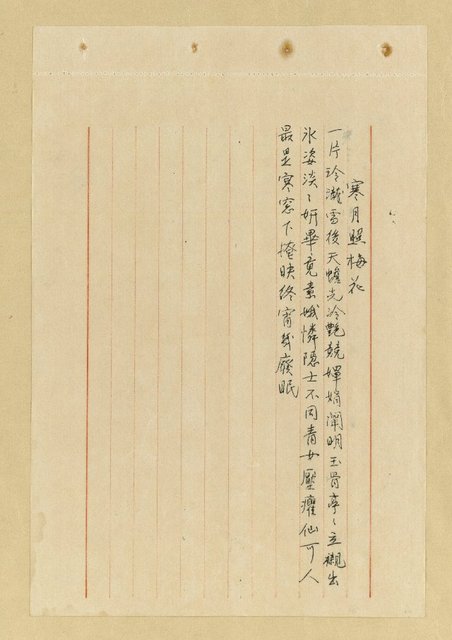 寒月照梅花
一片玲瓏雪後天蟾光冷艷競嬋娟闡明玉骨亭〻立襯出
氷姿淡〻妍畢竟素娥憐隱士不同青女壓癯仙可人
最是寒窓下掩映終宵我廢眠